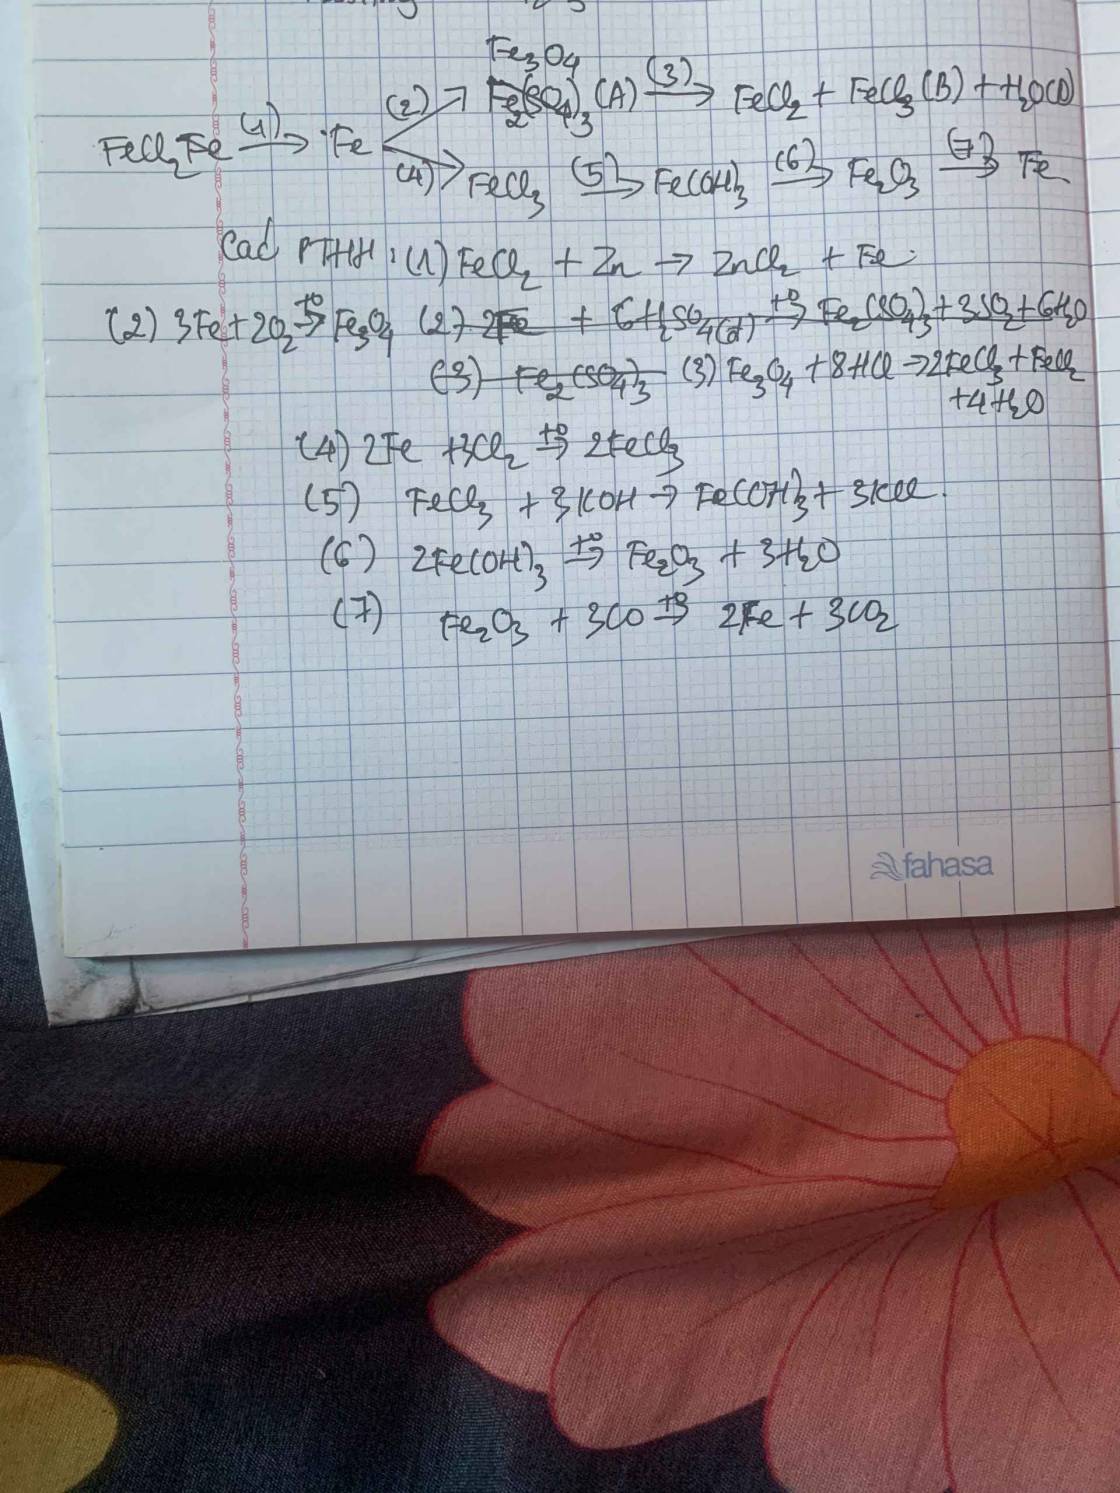 Fe3O4
FeCl2 Fe (1)→ Fe (2)→ Fe2(SO4)3 (A) (3)→ FeCl2 + FeCl3 (B) + H2O(C)
(4)→ FeCl3 (5)→ Fe(OH)3 (6)→ Fe2O3 (7)→ Fe
Các PTHH: (1) FeCl2 + Zn → ZnCl2 + Fe.
(2) 3Fe + 2O2 t0→ Fe3O4 (2) 2Fe + 6H2SO4(đ) t0→ Fe2(SO4)3 + 3SO2 + 6H2O
(3) Fe2(SO4)3 (3) Fe3O4 + 8HCl → 2FeCl3 + FeCl2
+ 4H2O
(4) 2Fe + 3Cl2 t0→ 2FeCl3
(5) FeCl3 + 3KOH → Fe(OH)3 + 3KCl.
(6) 2Fe(OH)3 t0→ Fe2O3 + 3H2O
(7) Fe2O3 + 3CO t0→ 2Fe + 3CO2
fahasa